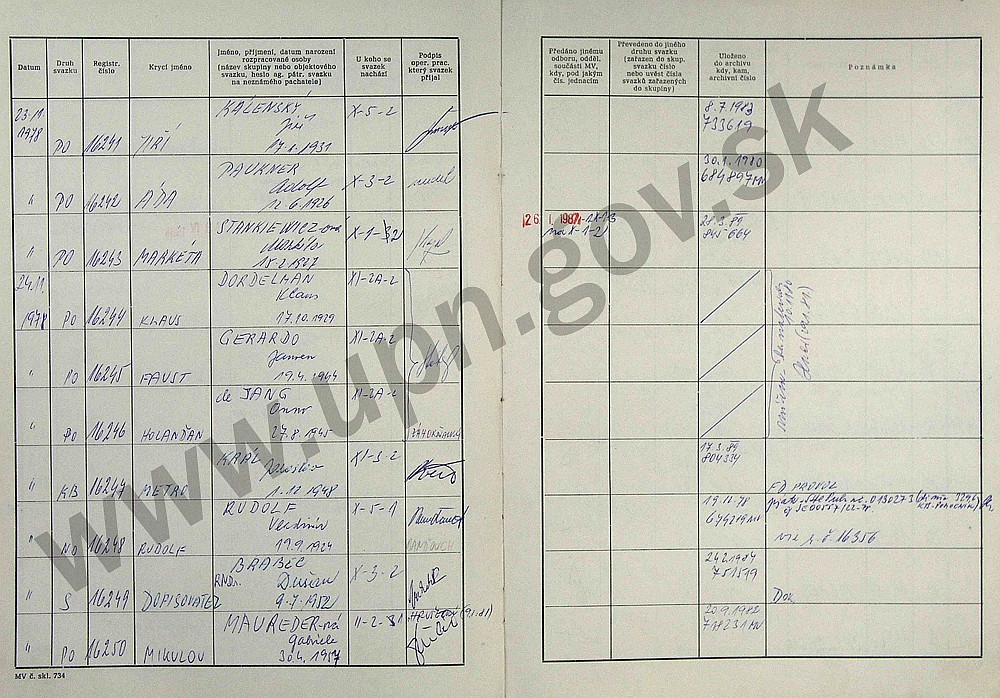 Datum
Druh svazku
Registr. číslo
Krycí jméno
Jméno, příjmení, datum narození
rozpracované osoby
(název skupiny nebo objektového
svazku, heslo ag. pátr. svazku
na neznámého pachatele)
U koho se
svazek
nachází
Podpis
oper. prac.
který svazek
přijal
Předáno jinému
odboru, odděl.
součásti MV,
kdy, pod jakým
čís. jednacím
Převedeno do jiného
druhu svazku
(zařazen do skup.
svazku číslo
nebo uvést čísla
svazků zařazených
do skupiny)
Uloženo
do archivu
kdy, kam,
archivní číslo
Poznámka
23.11.
1978 PO 16241 JIŘÍ
KALENSKÝ
Jiří
1931
X-5-2
8.7.1983
733619
" PO 16242 ÁĎA
PAUKNER
Adolf
12.6.1926
X-3-2
30.1.1980
684897 MV
" PO 16243 MARKÉTA
STANKIEWICZ-ová
15.2.1927
26. 1. 1987
na X-1-2
21.3.89
845664
24.11.
1978 PO 16244 KLAUS
DORDELMAN
Klaus
17.10.1929
XI-2A-2
" PO 16245 FAUST
GERARDO
Jansen
19.4.1944
XI-2A-2
" PO 16246 HOLANĎAN
de JANG
Onno
27.8.1945
XI-2A-2
" KB 16247 METRO
KARL
Jaroslav
1.12.1948
XI-3-2
17.3.89
804334
" NO 16248 RUDOLF
RUDOLF
Vladimír
19.9.1924
X-5-1
PANTOUCH
19.12.78
FD PROVOL
viz r.č. 16356
" S 16249 DOPISOVATEL
BRABEC
RNDr. Dušan
9.7.1952
X-3-2
24.2.1984
751519
Dok
" PO 16250 MIKULOV
MAUREDER-ová
Gabriele
30.4.1957
II-2-81
HRUŠECKÝ (9.1.81)
20.9.1982
718231 MV
MV č. skl. 734
www.upn.gov.sk